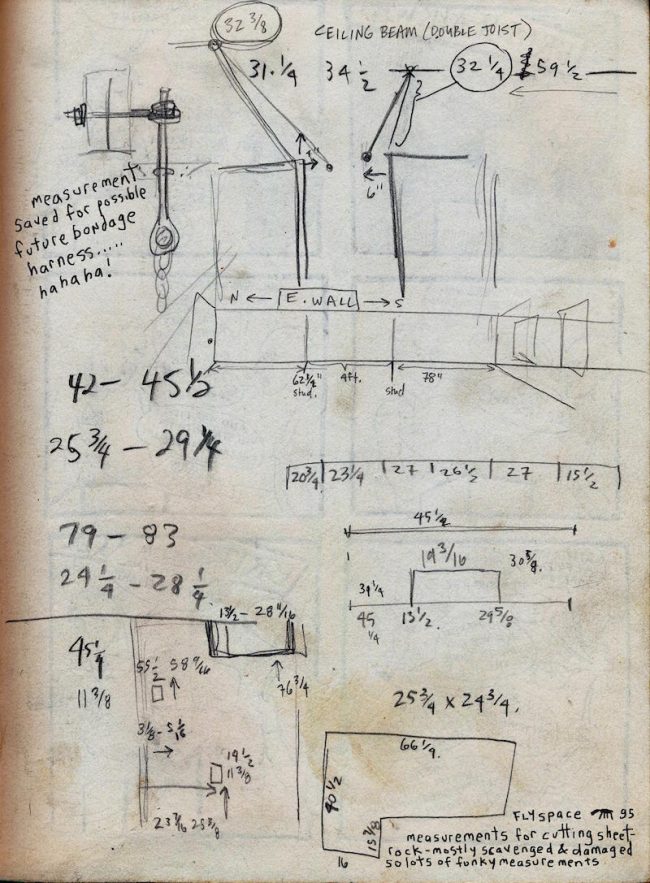 32 3/8
CEILING BEAM (DOUBLE JOIST)
31 · 1/4
34 1/2
32 1/4
59 1/2
6"
measurement
saved for possible
future bondage
harness.....
hahaha!
N ← E. WALL → S
62 1/4"
stud.
4ft.
stud
78"
42 – 45 1/2
25 3/4 – 29 1/4
20 3/4 23 1/4 27 26 1/2 27 15 1/2
79 – 83
24 1/4 – 28 1/4
45 1/4
19 3/16
30 5/8
39 1/4
45 1/4
13 1/2
29 5/8
13 1/2 – 28 11/16
45 1/4
11 3/8
55 1/2 58 9/16
76 3/4
3 1/8 – 5 1/16
19 1/2
11 3/8
23 7/16 25 3/8
25 3/4 x 24 3/4.
66 1/4
40 1/2
15 3/8
16
FLYspace 95
measurements for cutting sheet-
rock-mostly scavenged & damaged
so lots of funky measurements